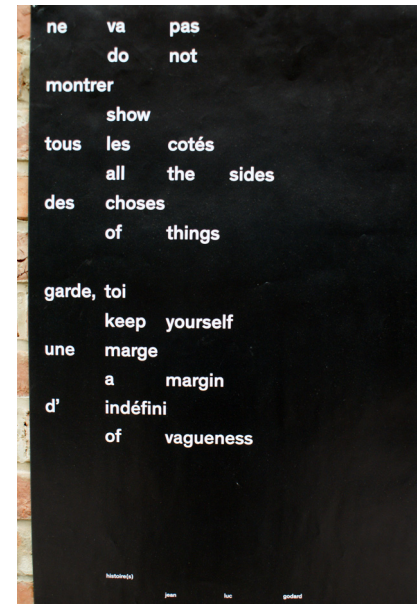 ne va pas
do not
montrer
show
tous les cotés
all the sides
des choses
of things
garde, toi
keep yourself
une marge
a margin
d' indéfini
of vagueness
histoire(s)
jean luc godard